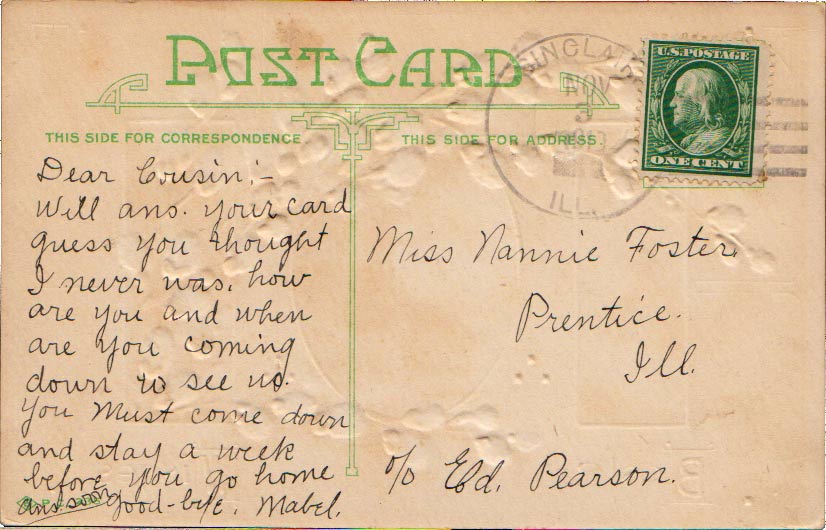 POST CARD
THIS SIDE FOR CORRESPONDENCE.
THIS SIDE FOR ADDRESS.
SINCLAIR
NOV
3
ILL.
U.S. POSTAGE
ONE CENT
Dear Cousin:-
Will ans. your card
guess you thought
I never was. how
are you and when
are you coming
down to see us.
You Must come down
and stay a week
before you go home
ans soon good-bye. Mabel.
Miss Nannie Foster.
Prentice.
Ill.
c/o Ed. Pearson.